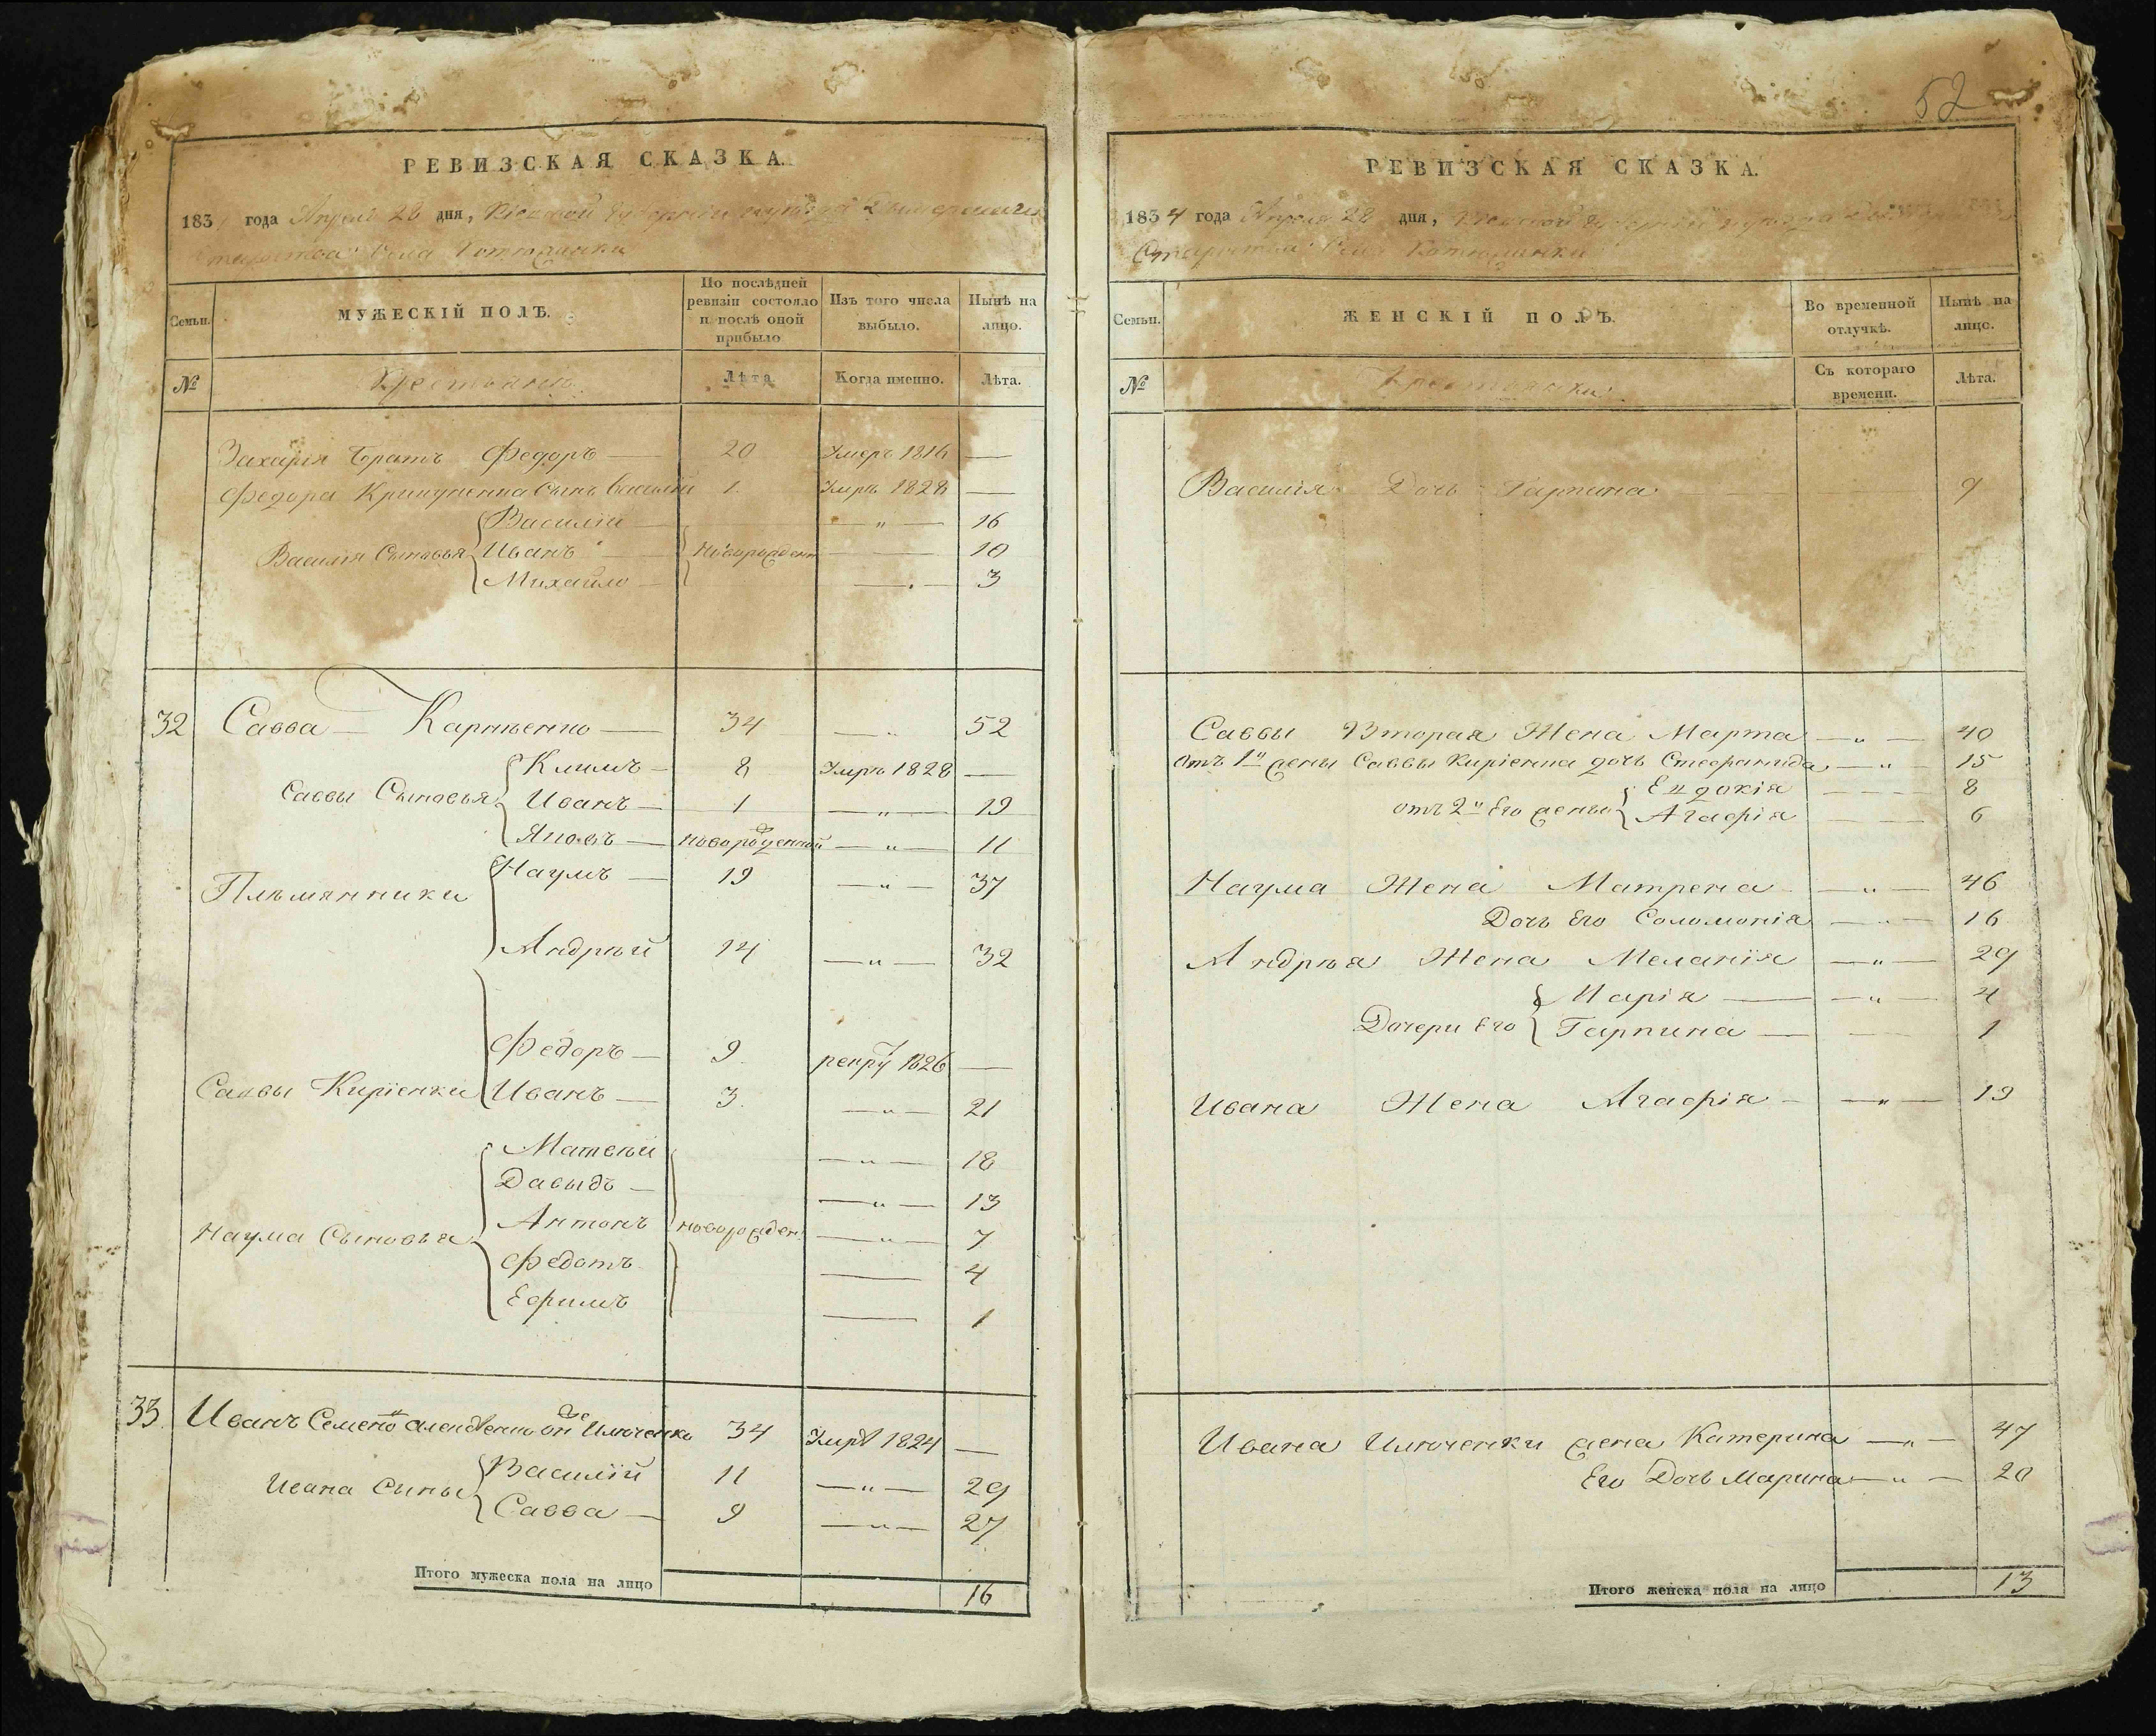 РЕВИЗСКАЯ СКАЗКА.
183 года Апреля 28 дня, Кіевской Губерніи
Староства Села Котюжинки
Семьи.
МУЖЕСКІЙ ПОЛЪ.
По послѣдней ревизіи состояло и послѣ оной прибыло
Изъ того числа выбыло.
Нынѣ на лицо.
№
Крестьяне
Лѣта
Когда именно.
Лѣта.
Захарія Братъ Федоръ — 20 Умеръ 1816 —
Федора Сынъ Василій 1. Умръ 1828 —
Василій — — „ — 16
Василія Сыновья Иванъ — новорожден — 10
Михайло — — 3
32 Савва — Карпѣенко — 34 — „ 52
Климъ — 8 Умръ 1828 —
Саввы Сыновья Иванъ — 1 — „ — 19
Яковъ — новорожденной — „ — 11
Племянники Наумъ — 19 — „ — 37
Андрѣй 14 — „ — 32
Федоръ — 9. рекру 1826 —
Саввы Киріенки Иванъ — 3. — „ — 21
Матвѣй — „ — 18
Давыдъ — — „ — 13
Антонъ новорожден. — „ — 7
Наума Сыновья
Федотъ — 4
Ефимъ — 1
33. Иванъ Семено онже Илюченко 34 Умръ 1824 —
Василій 11 — „ — 29
Ивана Сыны
Савва — 9 — „ — 27
Итого мужеска пола на лицо 16
52
РЕВИЗСКАЯ СКАЗКА.
1834 года Апреля 28 дня, Кіевской Губерніи
Староства Села Котюжинки
Семьи.
ЖЕНСКІЙ ПОЛЪ.
Во временной отлучкѣ.
Нынѣ на лицо.
№
Крестьянки
Съ котораго времени.
Лѣта.
Василія Дочь Гарпина 9
Саввы Вторая Жена Марта — „ — 40
Отъ 1й жены Саввы Киріенка дочь Стефанида — „ — 15
Евдокія — 8
отъ 2й Его жены Агафія — 6
Наума Жена Матрена — „ — 46
Дочь Его Соломонія — „ — 16
Андрѣя Жена Меланія — „ — 29
Марія — — „ — 4
Дочери Его Гарпина — — 1
Ивана Жена Агафія — — „ — 19
Ивана Илюченки жена Катерина — „ — 47
Его Дочь Марина — „ — 20
Итого женска пола на лицо 13